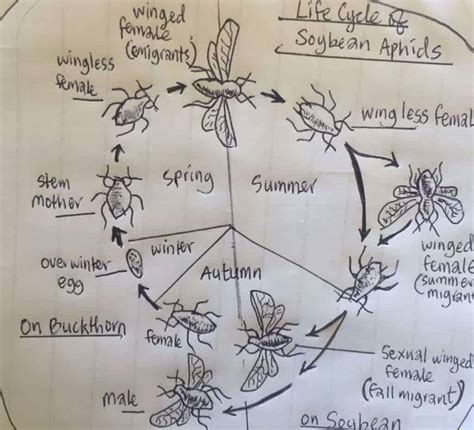 Life Cycle of
Soybean Aphids
winged
female
(emigrants)
wingless
female
wingless femal
stem
mother
spring
summer
winged
female
(summer
migran
overwinter
egg
winter
Autumn
On Buckthorn
female
male
Sexual winged
female
(fall migrant)
on Soybean